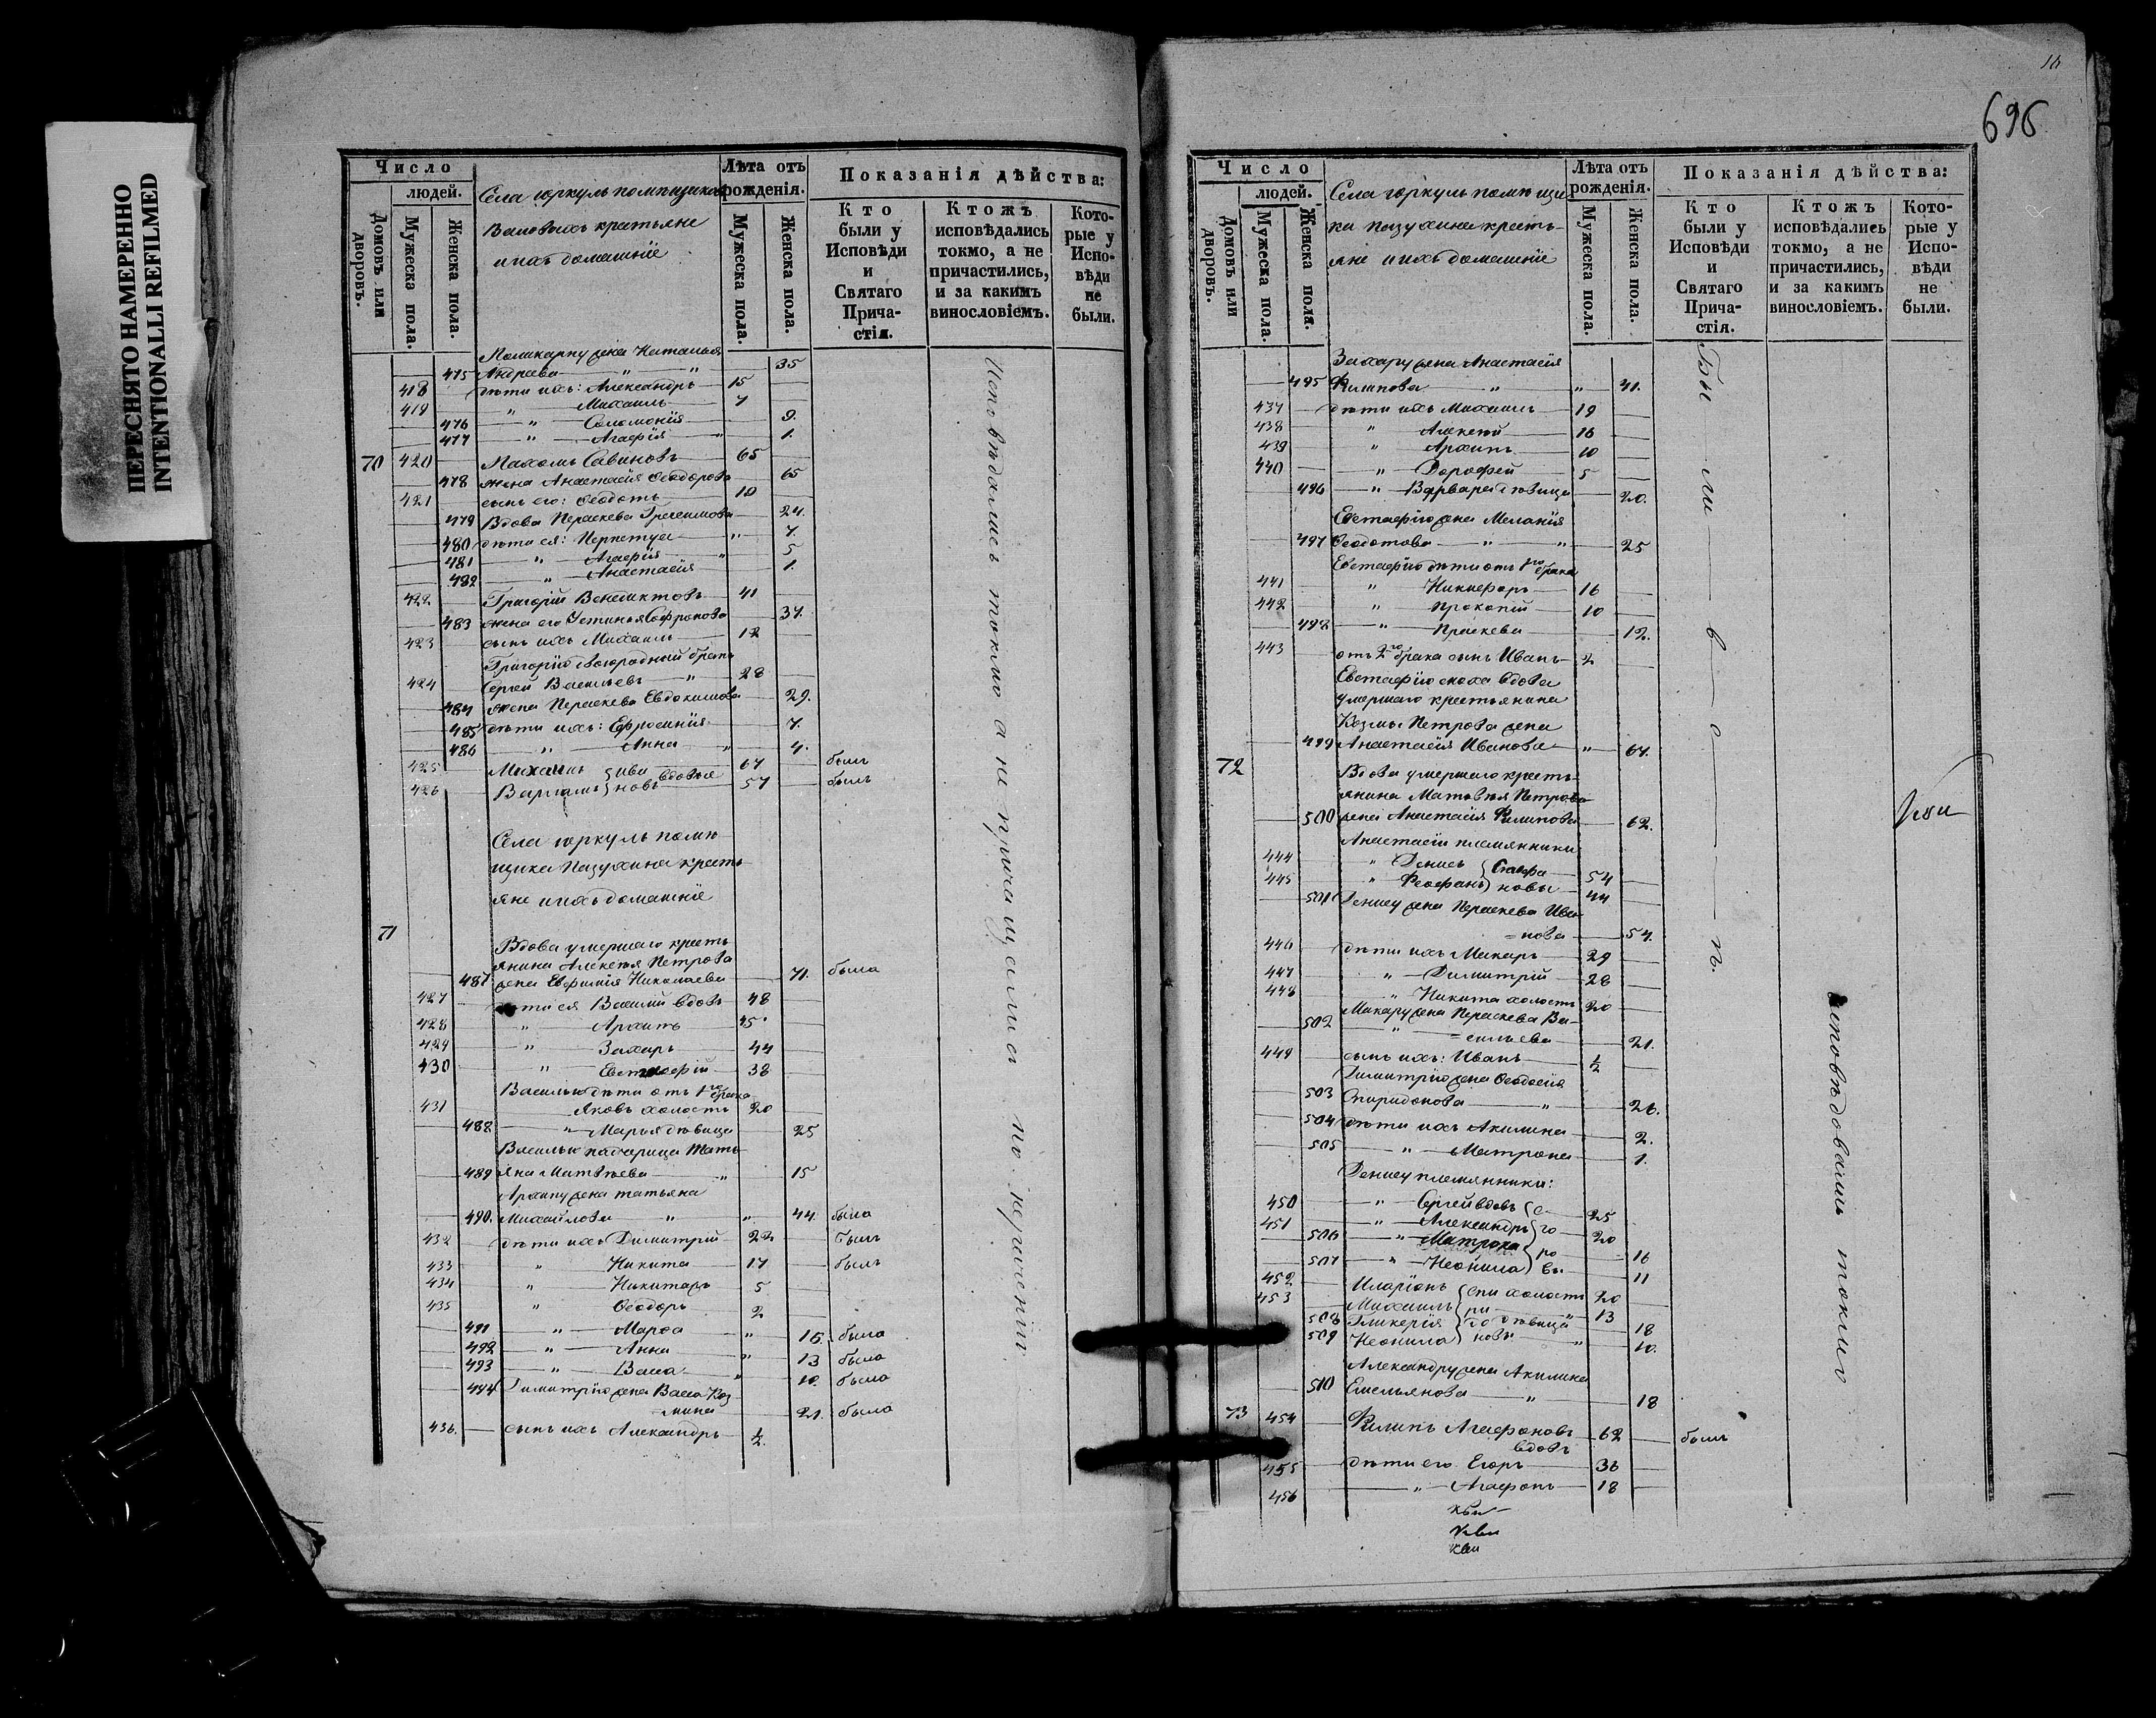 ПЕРЕСНЯТО НАМЕРЕННО
INTENTIONALLI REFILMED
Число
людей.
Домовъ или дворовъ.
Мужеска пола.
Женска пола.
Села юркуль помѣщиковъ
крестьяне
и ихъ домашніе
Лѣта отъ рожденія.
Мужеска пола.
Женска пола.
Показанія дѣйства:
Кто были у Исповѣди и Святаго Прича-стія.
Ктожъ исповѣдались токмо, а не причастились, и за какимъ винословіемъ.
Кото-рые у Испо-вѣди не были.
Поликарпу жена Наталья
475 Андреева " " 35
418 дѣти ихъ: Александръ 15
419 " Михаилъ 7
476 " Соломонія 9.
477 " Агафія " 1.
70 420 Савиновъ 65
478 жена Анастасія Ѳеодорова 65
421 сынъ его: Ѳеодотъ 10
479 Вдова Параскева 24.
480 дѣти ея: Перпетуа " 7.
481 " Агафія " 5
482 " Анастасія 1.
422 Григорій Венедиктовъ 41
483 жена его Устинья Софронова 37.
423 сынъ ихъ Михаилъ 12
Григорію двоюродный братъ
424 Сергѣй Васильевъ " 28
484 жена Параскева Евдокимова 29.
485 дѣти ихъ: Ефросинія 7.
486 " Анна " 4.
425 Михаилъ Ива вдовые 67 былъ
426 Варламъ новы 57 былъ
Села юркуль помѣ
щика Пазухина кресть
яне и ихъ домашніе
71
Вдова умершаго кресть
янина Алексѣя Петрова
487 жена Евфимія Николаева 71. была
427 дѣти ея Василій вдовъ 48
428 " Архипъ 45
429 " Захаръ 44
430 " Евстафій 38
Василью дѣти отъ 1го брака
431 Яковъ холостъ 20
488 " Марья дѣвица 25
Василью падчерица Тать
489 яна Матвѣева " 15
Архипу жена татьяна
490. Михайлова " " 44. была
432 дѣти ихъ Димитрій 22 былъ
433 " Никита 17 былъ
434 " Никитаръ 5
435 " Ѳеодоръ 2
491 " Марѳа " 16. была
492 " Анна " 13 была
493 " Васса " 10. была
494 Димитрію жена Васса Коз
мина 21. была
436. сынъ ихъ Александръ ½.
Исповѣдались токмо а не причащались по нерачению
14
696
Число
людей.
Домовъ или дворовъ.
Мужеска пола.
Женска пола.
Села юркуль помѣщи
ка пазухина кресть-
яне и ихъ домашніе
Лѣта отъ рожденія.
Мужеска пола.
Женска пола.
Показанія дѣйства:
Кто были у Исповѣди и Святаго Прича-стія.
Ктожъ исповѣдались токмо, а не причастились, и за какимъ винословіемъ.
Кото-рые у Испо-вѣди не были.
Захару жена Анастасія
495 Филипова " " 41.
437 дѣти ихъ Михаилъ 19
438 " Алексѣй 16
439 " Архипъ 10
440 " Дорофей 5
496 " Варвара дѣвица 20.
Евстафію жена Меланія
497 Ѳеодотова " " 25
Евстафію дѣти отъ 1го брака
441 " Никифоръ 16
442 " Прокопій 10
498 " Праскева 12.
443 отъ 2го брака сынъ Иванъ 2
Евстафію сноха вдова
умершаго крестьянина
Козмы Петрова жена
499 Анастасія Иванова " 64.
72 Вдова умершаго кресть-
янина Матвѣя Петрова
500 жена Анастасія Филипова 62.
Анастасіи племянники
444 " Денисъ Стафа 54
445 " Феофанъ новы 44
501 Денису жена Параскева Ива
=нова 54.
446 дѣти ихъ Макаръ 29
447 " Димитрій 28
448 " Никита холостъ 20
Макару жена Параскева Ва-
502 " =сильева 21.
449 сынъ ихъ: Иванъ ½
Димитрію жена Ѳеодосія
503 Спиридонова " 26.
504 дѣти ихъ Акилина 2.
505 " Матрона 1.
Денису племянники:
450 " Сергѣй вдовъ е 25
451 " Александръ го 20
506 " Матрона ро 16
507 " Неонила вы 11
452 Иларіонъ Спи холосты 20
453 Михаилъ ри " 13
508 Гликерія до дѣвицы 18
509 Неонила новы " 10.
Александру жена Акилина
510 Емельянова " 18
73 454 Филипъ Агафоновъ 62 былъ
вдовъ
455 дѣти его Егоръ 36
456 " Агафонъ 18
исповѣдовались токмо